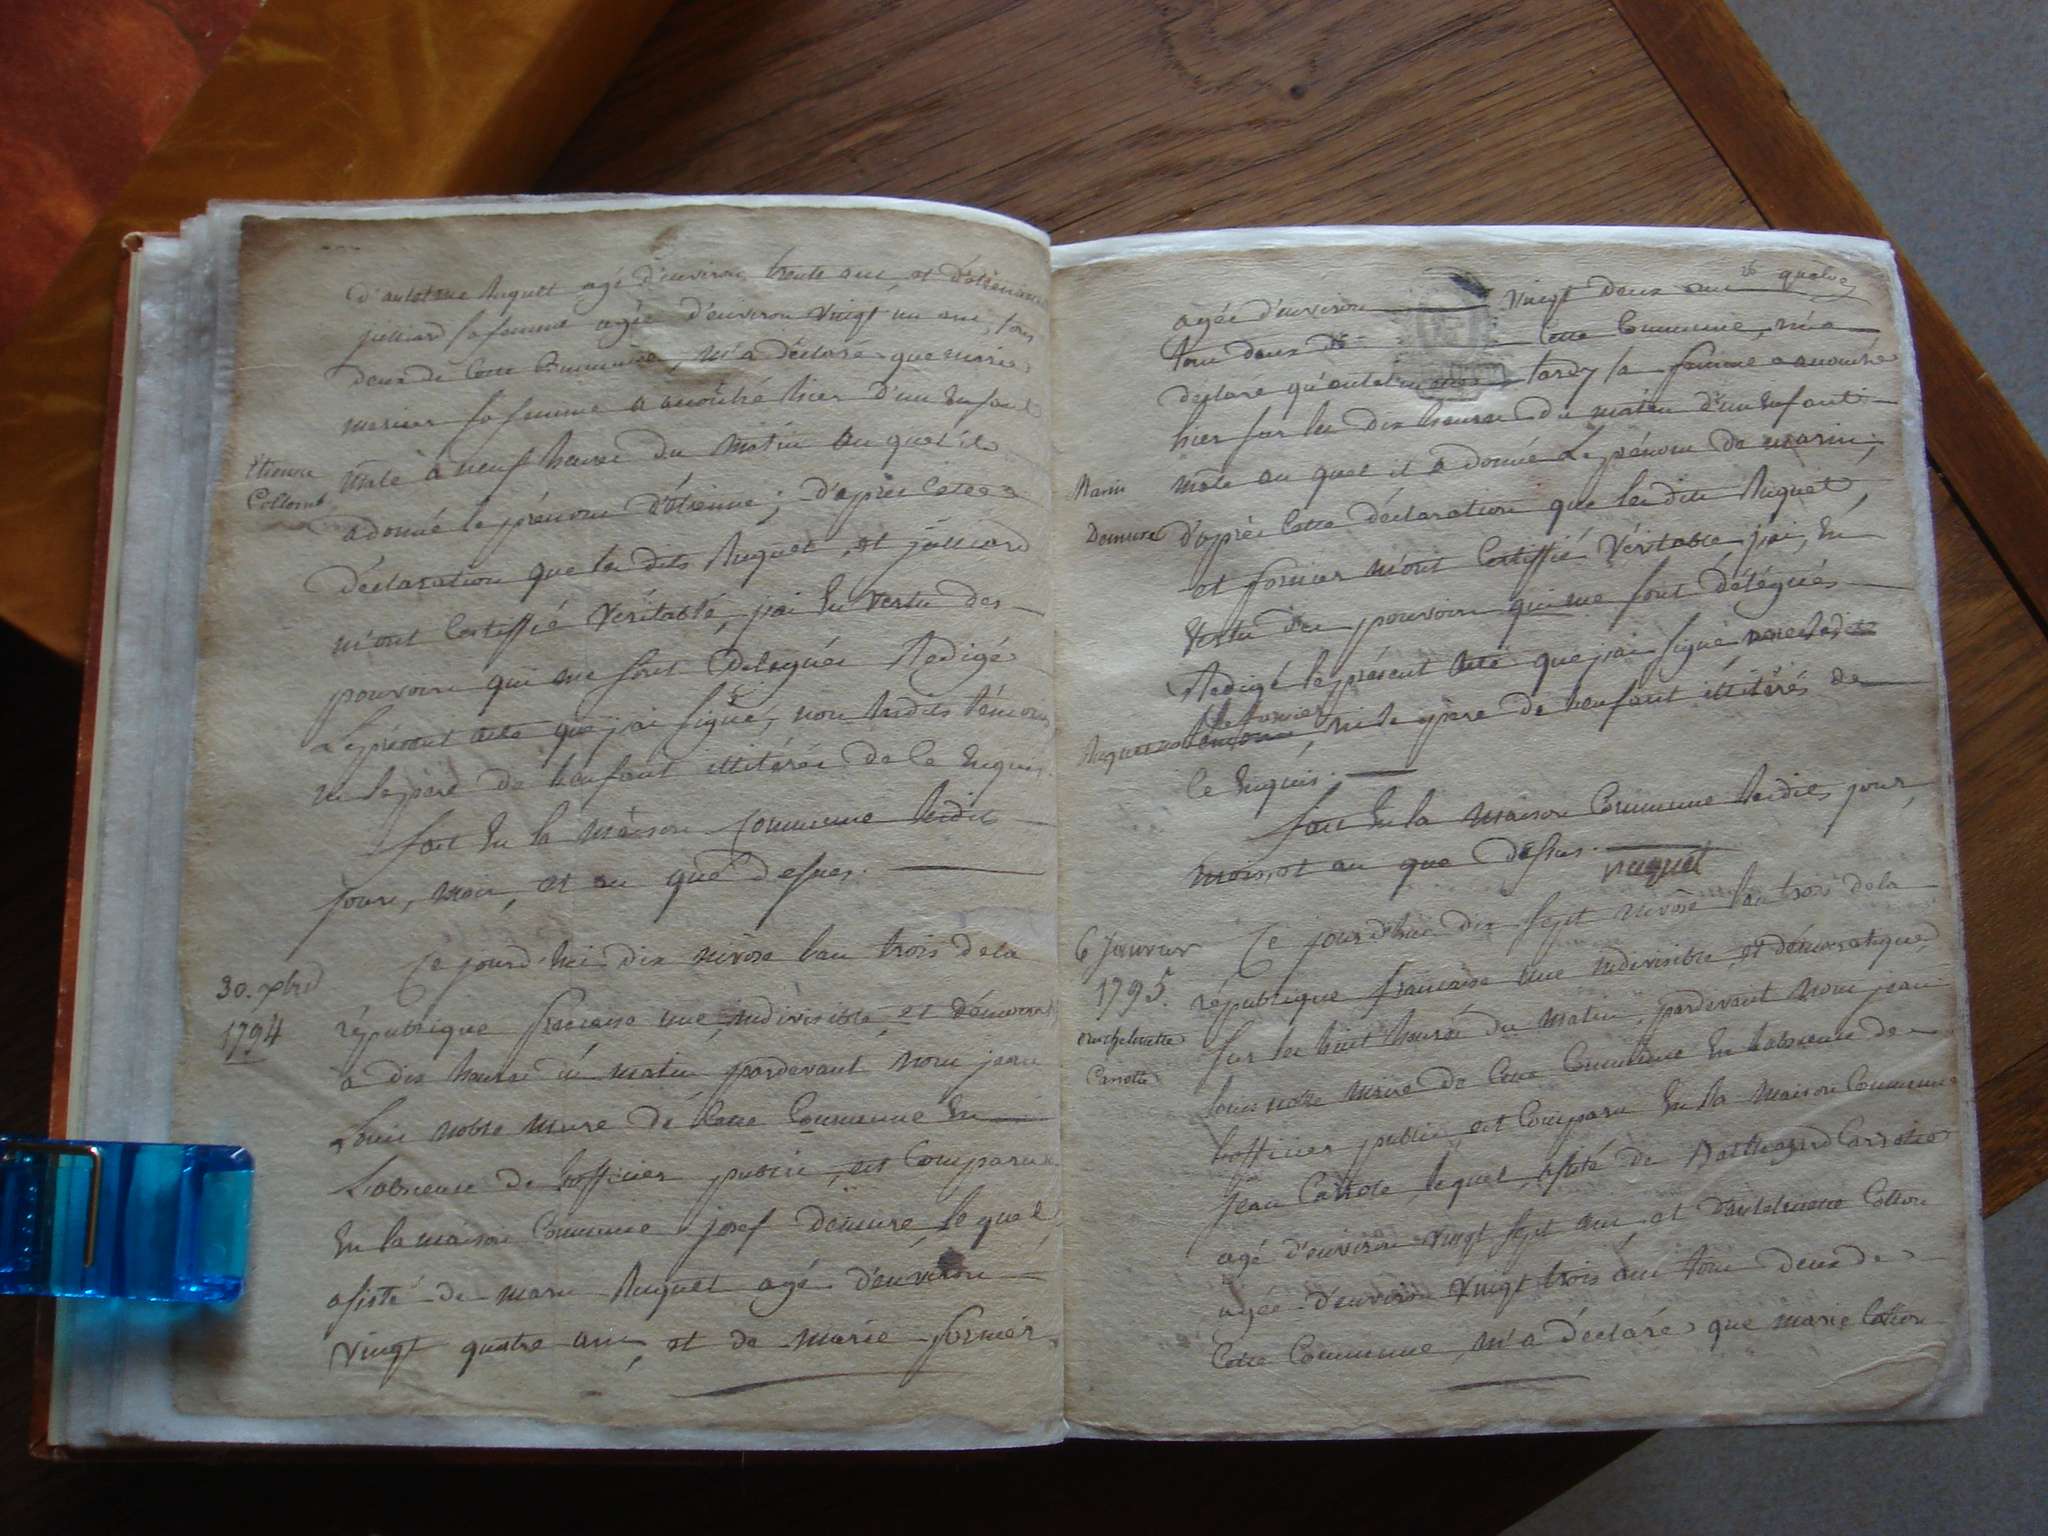 d'antelme Ruquet agé d'environ trente ans, et d'étiennette
julliard sa femme agée d'environ vingt un ans, tous
deux de cette Commune, m'a déclaré que marie
mercier sa femme a acouché hier d'un Enfant
Etienne
Collomb
mâle à neuf heures du matin au quel il
a donné le prénom d'étienne; d'après cette
déclaration que les dits Ruquet et julliard
m'ont Certiffié véritable, j'ai En vertu des
pouvoirs qui me sont délégués Redigé
Le présent acte que j'ai signé, non lesdits témoins
ni le père de l'enfant illitérés de ce Enquis.
fait En la maison Commune lesdits
jour, mois, et an que dessus.
30. xbre
1794
Ce jourd'hui dix nivôse l'an trois de la
république francaise une, indivisible, et démocrat
à dix heures du matin pardevant nous jean
Louis noble maire de cette Commune En
L'absence de l'officier public, est Comparu
En la maison Commune josef demure, le quel
assisté de marin Ruquet agé d'environ
vingt quatre ans, et de marie fornier
26 quatre
agée d'environ vingt deux ans
tous deux de cette Commune, m'a
déclaré qu'antelmette tardy sa femme a acouché
hier sur les dix heures du matin d'un Enfant
Marin
Demure
mâle au quel il a donné Le prénom de marin;
d'après cette déclaration que les dits Ruquet,
et fornier m'ont Certiffié véritable, j'ai, En
vertu des pouvoirs qui me sont délégués
Redigé le présent acte que j'ai signé avec ledit
Ruquet non la fornier, ni le père de l'enfant illitérés de
ce Enquis.
fait En la maison Commune lesdits jour,
mois, et an que dessus.
ruquet
6 Janvier
1795.
Ce jourd'hui dix sept nivôse l'an trois de la
république francaise une indivisible, et démocratique
Carrotte
sur les huit heures du matin, pardevant nous jean
louis noble maire de cette Commune En l'absence de
l'officier public, est Comparu En la maison Commune
jean Carrote, lequel assisté de Balthazard Carrote
agé d'environ vingt sept ans, et d'antelmette Cotton
agée d'environ vingt trois ans tous deux de
Cette Commune, m'a déclaré que marie Cotton